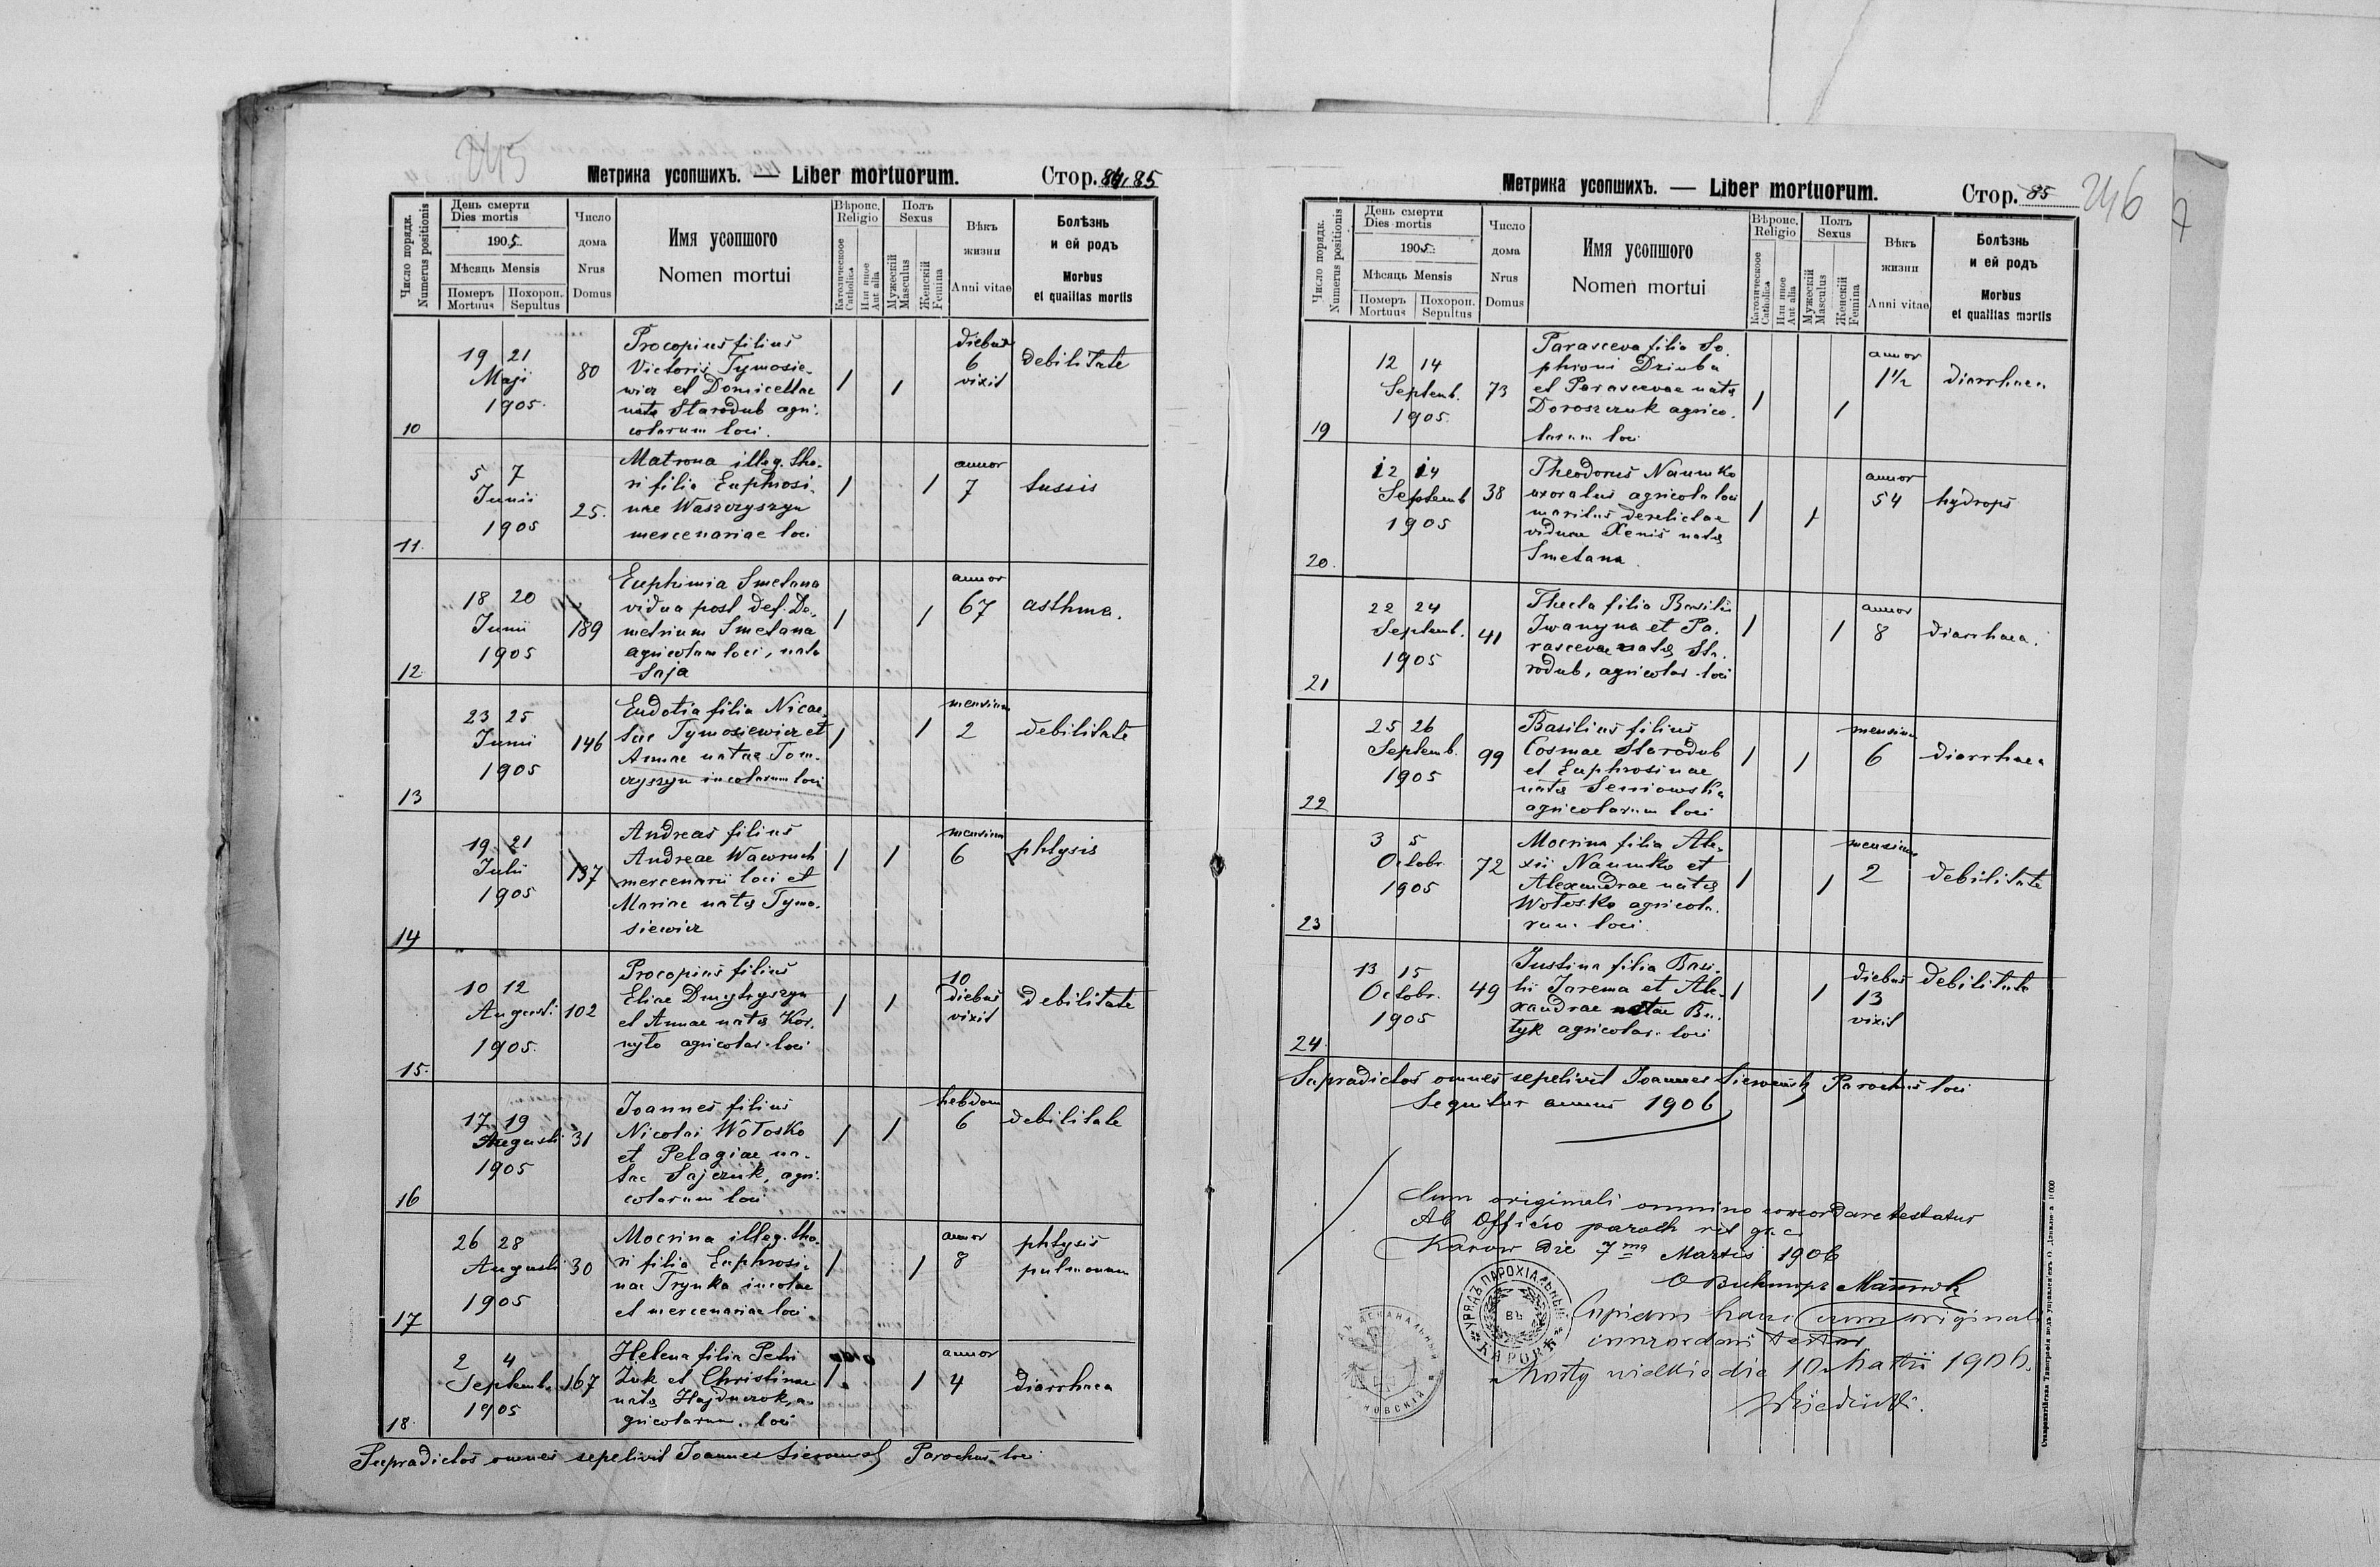 245
Метрика усопшихъ. — Liber mortuorum.
Стор. 84. 85
Число порядк.
Numerus positionis
День смерти
Dies mortis
1905.
Мѣсяць Mensis
Померъ
Mortuus
Похорон.
Sepultus
Число
дома
Nrus
Domus
Имя усопшого
Nomen mortui
Вѣроис.
Religio
Католическое
Catholica
Или иное
Aut alia
Полъ
Sexus
Мужескій
Masculus
Женскій
Femina
Вѣкъ
жизни
Anni vitae
Болѣзнь
и ей родъ
Morbus
et qualitas mortis
10
19 21
Maji
1905.
80
Procopius filius
Victorii Tymosie-
wicz et Domicellae
nata Starodub agri-
colarum loci.
1 1
diebus
6
vixit
debilitate
11.
5 7
Junii
1905
25.
Matrona illeg. tho-
ri filia Euphrosi-
nae Waszczyszyn
mercenariae loci
1 1
annor
7
tussis
12
18 20
Junii
1905
189
Euphimia Smetana
vidua post def. De-
metrium Smetana
agricolam loci, nata
Saja
1 1
annor
67
asthma.
13
23 25
Junii
1905
146
Eudotia filia Nico-
lai Tymosiewicz et
Annae natae Tom-
czyszyn incolarum loci
1 1
mensium
2
debilitate
14
19 21
Julii
1905
137
Andreas filius
Andreae Wawruch
mercenarii loci et
Mariae nata Tymo-
siewicz
1 1
mensium
6
phtysis
15.
10 12
Augusti
1905.
102
Procopius filius
Eliae Dmytryszyn
et Annae nata Kor-
nyło agricolar. loci
1 1
10
diebus
vixit
debilitate
16
17 19
Augusti
1905
31
Joannes filius
Nicolai Wołosko
et Pelagiae na-
tae Sajczuk, agri-
colarum loci
1 1
hebdom
6
debilitate
17
26 28
Augusti
1905
30
Mocrina illeg. tho-
ri filia Euphrosi-
nae Trynka incolae
et mercenariae loci.
1 1
annor
8
phtysis
pulmonum
18.
2 4
Septemb.
1905
167
Helena filia Petri
Żuk et Christinae
nata Hajduczok, a-
gricolarum. loci
1 1
annor
4
diarrhaea
Supradictos omnes sepelivit Joannes Parochus loci
246
7
Метрика усопшихъ. — Liber mortuorum.
Стор. 85
Число порядк.
Numerus positionis
День смерти
Dies mortis
1905.
Мѣсяць Mensis
Померъ
Mortuus
Похорон.
Sepultus
Число
дома
Nrus
Domus
Имя усопшого
Nomen mortui
Вѣроис.
Religio
Католическое
Catholica
Или иное
Aut alia
Полъ
Sexus
Мужескій
Masculus
Женскій
Femina
Вѣкъ
жизни
Anni vitae
Болѣзнь
и ей родъ
Morbus
et qualitas mortis
19
12 14
Septemb.
1905.
73
Parasceva filia So-
phroni Dziuba
et Parascevae nata
Doroszczuk agrico-
larum loci
1 1
annor
1½
diarrhaea
20.
12 14
Septemb
1905
38
Theodorus Naumko
uxoratus agricola loci
maritus derelictae
viduae Xeniš nata
Smetana.
1 1
annor
54
hydrops
21
22 24
Septemb.
1905
41
Thecla filia Basilii
Iwanyna et Pa-
rascevae nata Sta-
rodub, agricolar. loci
1 1
annor
8
diarrhaea.
22
25 26
Septemb.
1905
99
Basilius filius
Cosmae Starodub
et Euphrosinae
nata Seniowska
agricolarum loci
1 1
mensium
6
diarrhaea
23
3 5
Octobr.
1905
72
Mocrina filia Ale-
xii Naumko et
Alexandrae nata
Wołosko agricola-
rum. loci.
1 1
mensium
2
debilitate
24.
13 15
Octobr.
1905
49
Justina filia Basi-
lii Jarema et Ale-
xandrae natae Bu-
tyk agricolar. loci
1 1
diebus
13
vixit
debilitate
Supradictos omnes sepelivit Joannes Parochus loci
Sequitur annus 1906
Cum originali omnino concordare testatur
Ab Officio paroch rit gr. c
Karow die 7ma Martii 1906
О Викторъ
УРЯДЪ ПАРОХІАЛЬНЫЙ
ВЪ
КАРОВѢ
Copiam hanc cum originali
concordare testor
Mosty wielkie die 10 Martii 1906.